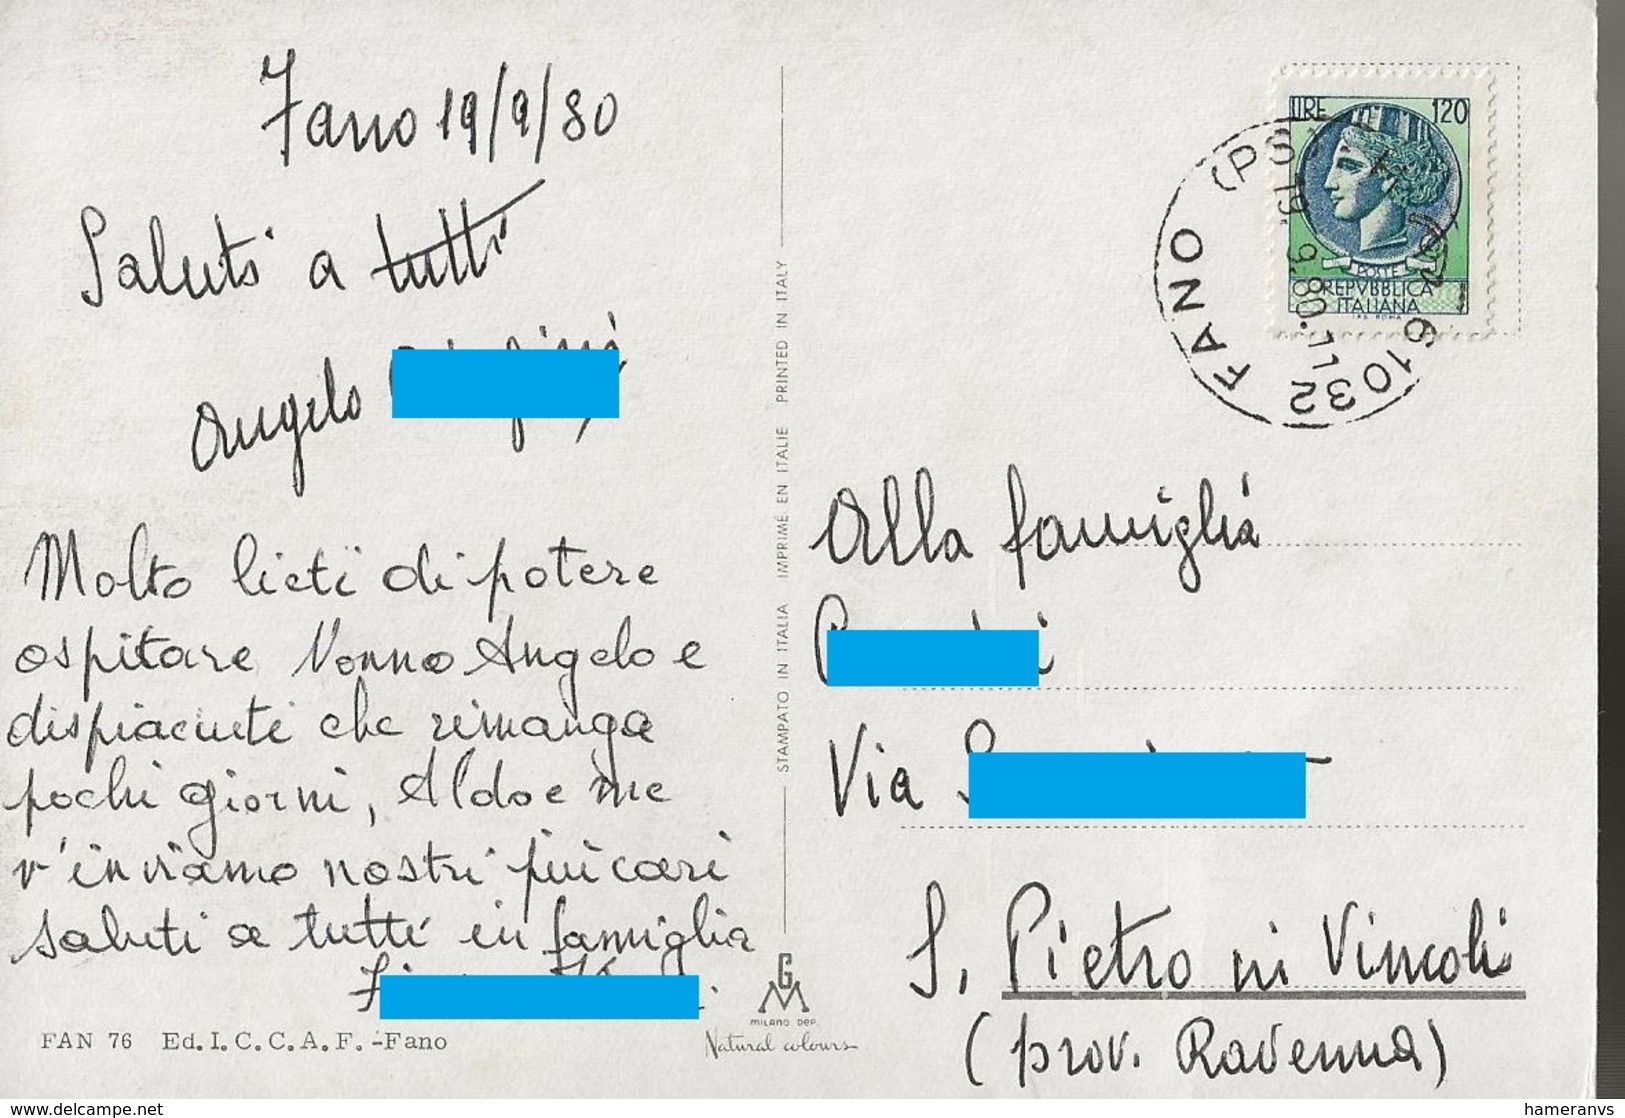 Fano 19/9/80
Saluti a tutti
Angelo
Molto lieti di potere
ospitare Nonno Angelo e
dispiaciuti che rimanga
pochi giorni, Aldo e me
v'inviamo nostri più cari
saluti a tutti in famiglia
FAN 76 Ed. I. C. C. A. F. - Fano
STAMPATO IN ITALIA IMPRIMÉ EN ITALIE PRINTED IN ITALY
GM
MILANO DEP.
Natural colours
LIRE 120
POSTE
REPVBBLICA
ITALIANA
I.P.S. ROMA
61032 FANO (PS)
19.9.80.11
Alla famiglia
Via
S. Pietro in Vincoli
(prov. Ravenna)
www.delcampe.net
hameranvs